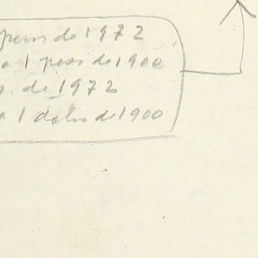 pesos de 1972
a 1 peso de 1900
. de 1972
a 1 dolar de 1900